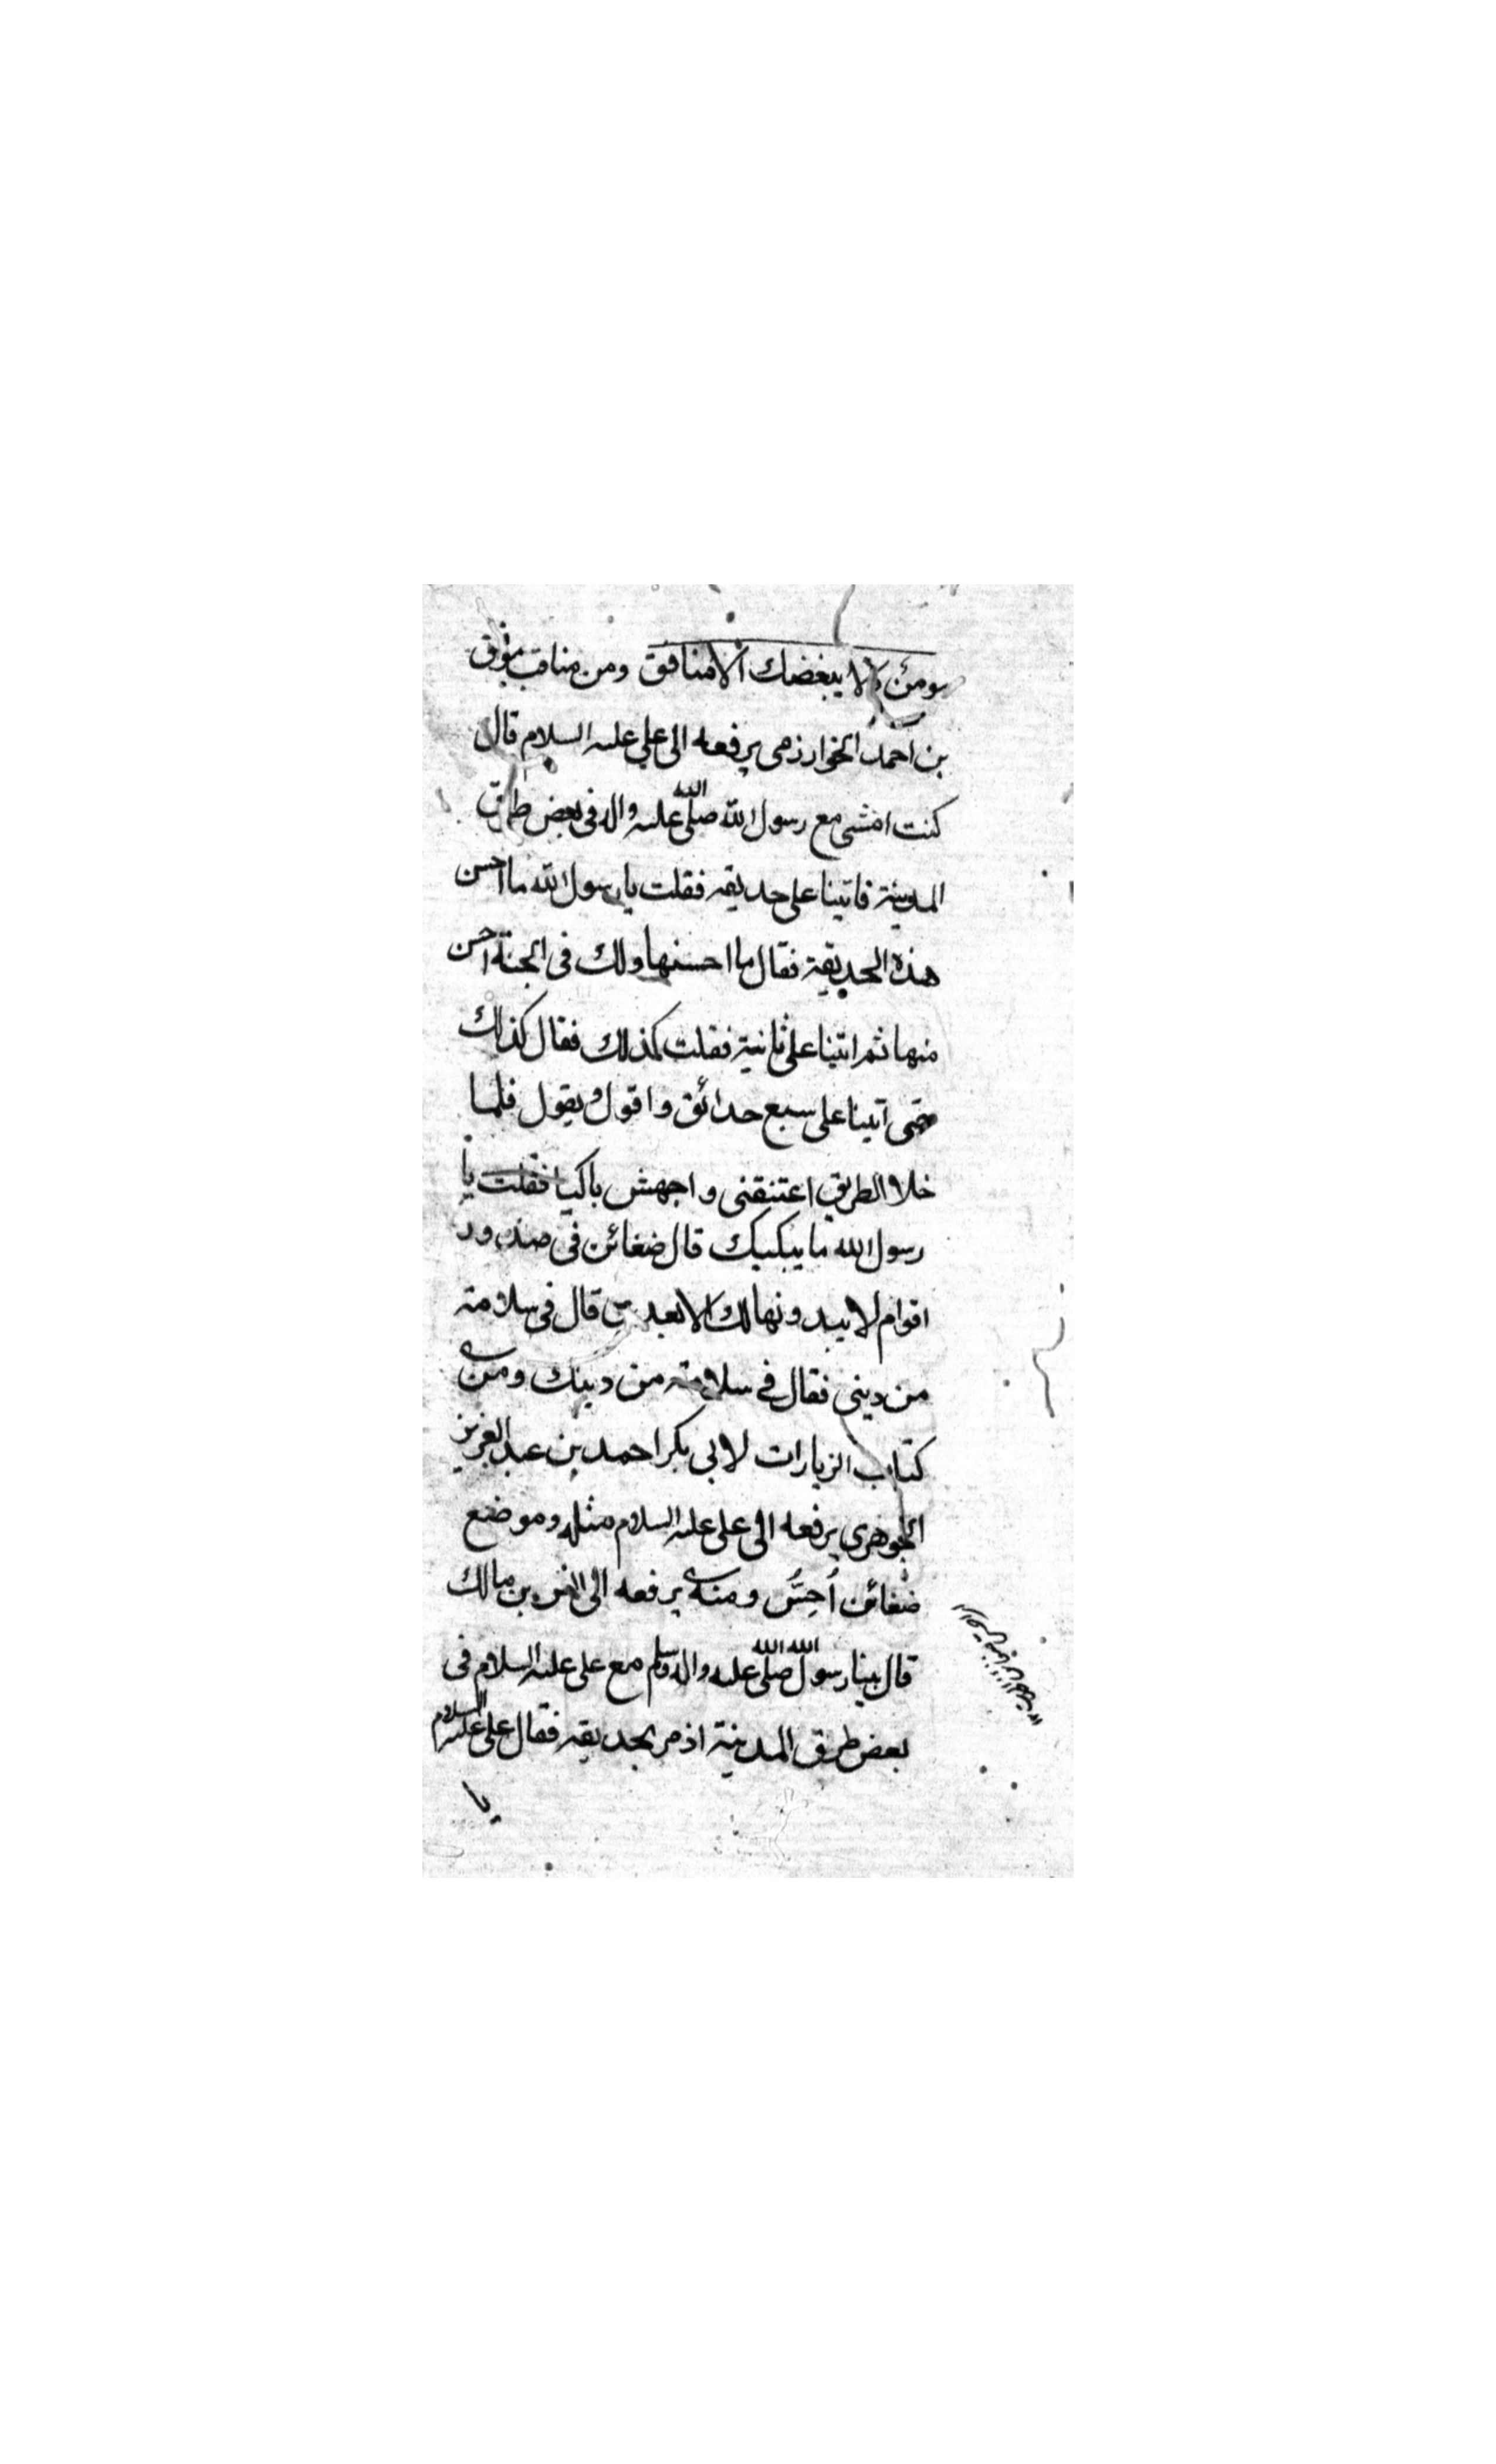 مومن ولا يبغضك الا منافق ومن مناقب موفق
بن احمد الخوارزمى يرفعه الى علي عليه السلام قال
كنت امشى مع رسول الله صلى الله عليه واله فى بعض طرق
المدينة فاتينا على حديقة فقلت يا رسول الله ما احسن
هذه الحديقة فقال ما احسنها ولك فى الجنة احسن
منها ثم اتينا على ثانية فقلت كذلك فقال كذلك
حتى اتينا على سبع حدائق واقول ويقول فلما
خلا الطريق اعتنقنى واجهش باكيا فقلت يا
رسول الله ما يبكيك قال ضغائن فى صدور
اقوام لا يبدونها لك الا بعدى قال فى سلامة
من دينى فقال في سلامة من دينك ومن
كتاب الزيارات لابى بكر احمد بن عبد العزيز
الجوهرى يرفعه الى على عليه السلام مثله وموضع
ضغائن اُحِسُّ ومنه يرفعه الى انس بن مالك
قال بينا رسول الله صلى الله عليه واله وسلم مع على عليه السلام فى
بعض طرق المدينة اذ مر بحديقة فقال على عليه السلام
يا